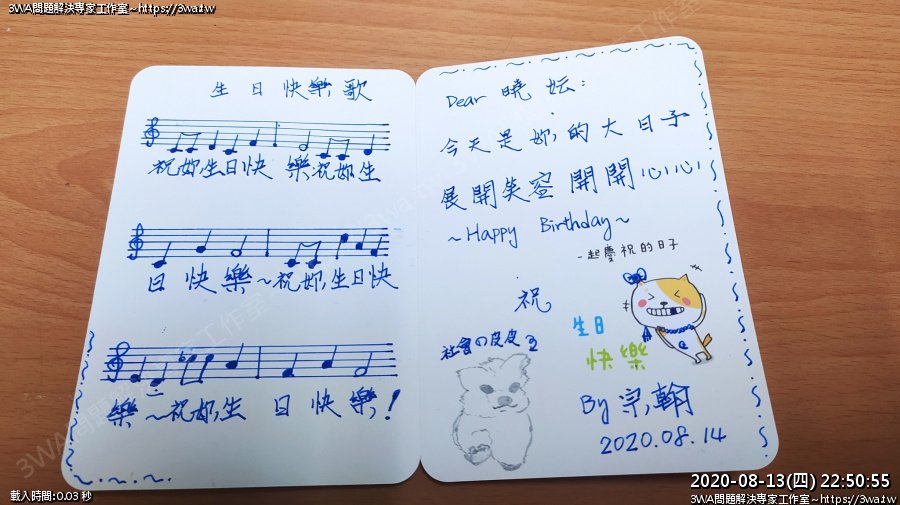 3WA問題解決專家工作室~https://3wa.tw
3WA問題解決專家工作室~https://3wa.tw
生日快樂歌
祝妳生日快 樂祝妳生
日 快 樂~祝妳生日快
樂~祝妳生 日 快 樂!
Dear 曉妘:
今天是妳的大日子
展開笑容 開開心心
~Happy Birthday~
一起慶祝的日子
祝
生日
快樂
社會の皮皮
By 宗翰
2020.08.14
載入時間:0.03 秒
2020-08-13(四) 22:50:55
3WA問題解決專家工作室~https://3wa.tw